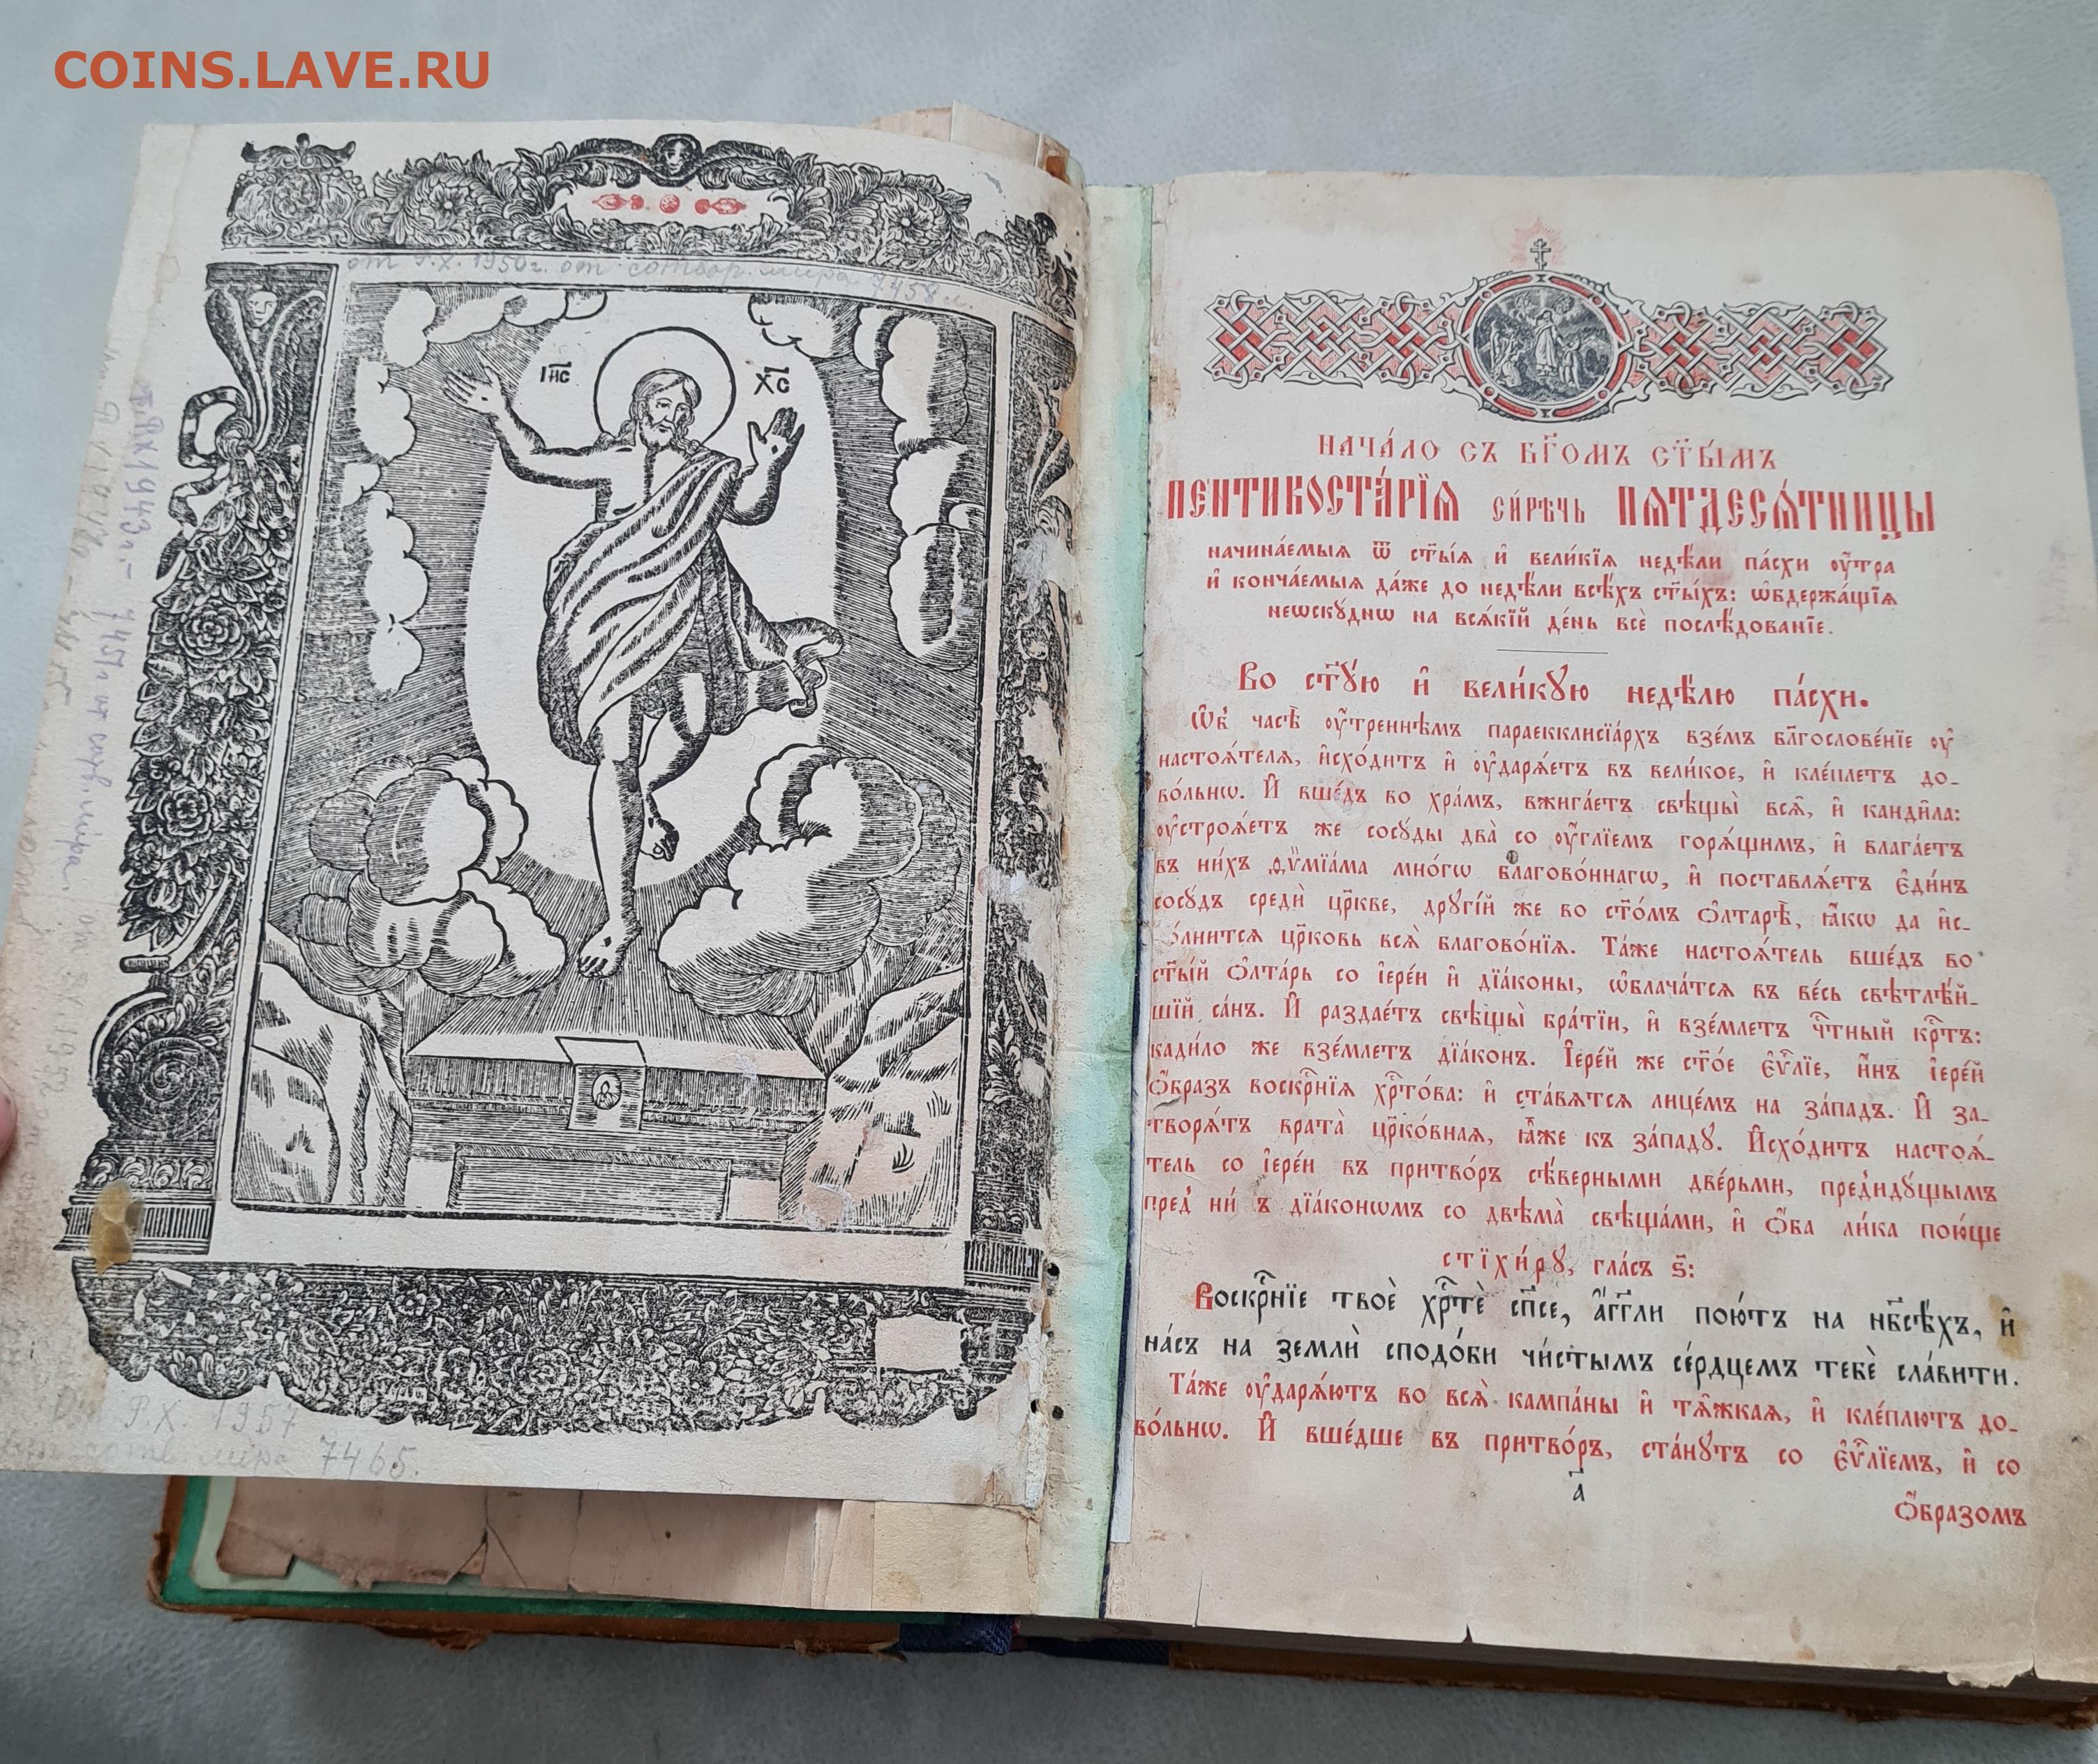 COINS.LAVE.RU
от Р.Х. 1950г. от сотвор. мира 7458 л.
І҆и҃с Хс҃
От Р.Х. 1957
от сотв мира 7465.
Нача́ло съ бг҃омъ ст҃ы́мъ
пентикоста́рїѧ си́рѣчь пѧтдесѧ́тницы
начина́емыѧ ѿ ст҃ы́ѧ и҆ вели́кїѧ недѣ́ли па́схи оу҆́тра
и҆ конча́емыѧ да́же до недѣ́ли всѣ́хъ ст҃ы́хъ: ѡ҆бдержа́щїѧ
неѡскꙋ́днѡ на всѧ́кїй де́нь всѐ послѣ́дованїе.
Во ст҃ꙋ́ю и҆ вели́кꙋю недѣ́лю па́схи.
Ѡ҆́б̾ часѣ̀ оу҆́треннѣмъ параекклисїа́рхъ взе́мъ бл҃гослове́нїе оу҆
настоѧ́телѧ, и҆схо́дитъ и҆ оу҆дарѧ́етъ въ вели́кое, и҆ кле́плетъ до-
во́льнѡ. И҆ вше́дъ во хра́мъ, вжига́етъ свѣщы̀ всѧ̑, и҆ канди̑ла:
оу҆строѧ́етъ же сосꙋ́ды два̀ со оу҆́глїемъ горѧ́щимъ, и҆ влага́етъ
въ ни́хъ ѳѷмїа́ма мно́гѡ благово́ннагѡ, и҆ поставлѧ́етъ є҆ди́нъ
сосꙋ́дъ средѝ цр҃кве, дрꙋгі́й же во ст҃о́мъ ѻ҆лтарѣ̀, ꙗ҆́кѡ да и҆с-
о́лнитсѧ цр҃ковь всѧ̀ благово́нїѧ. Та́же настоѧ́тель вше́дъ во
ст҃ы́й ѻ҆лта́рь со і҆ере́и и҆ дїа́коны, ѡ҆блача́тсѧ въ ве́сь свѣтлѣ́й-
шїй са́нъ. И҆ раздае́тъ свѣщы̀ бра́тїи, и҆ взе́млетъ чⷭ҇тный крⷭ҇тъ:
кади́ло же взе́млетъ дїа́конъ. І҆ере́й же ст҃о́е є҆ѵⷢ҇лїе, и҆́нъ і҆ере́й
ѻ҆́бразъ воскрⷭ҇нїѧ хрⷭ҇то́ва: и҆ ста́вѧтсѧ лице́мъ на за́падъ. И҆ за-
творѧ́тъ врата̀ цр҃ко́внаѧ, ꙗ҆̀же къ за́падꙋ. И҆схо́дитъ настоѧ́-
тель со і҆ере́и въ притво́ръ сѣ́верными две́рьми, пред̾идꙋ́щымъ
пред̾ ни́ ъ дїа́конѡмъ со двѣма̀ свѣща́ми, и҆ ѻ҆́ба ли́ка пою́ще
стїхи́рꙋ, гла́съ ѕ҃:
Воскрⷭ҇нїе твоѐ хрⷭ҇тѐ сп҃се, а҆́гг҃ли пою́тъ на нб҃сѣ́хъ, и҆
на́съ на землѝ сподо́би чи́стымъ се́рдцемъ тебѐ сла́вити.
Та́же оу҆дарѧ́ютъ во всѧ̑ кампа́ны и҆ тѧ̑жкаѧ, и҆ кле́плютъ до-
во́льнѡ. И҆ вше́дше въ притво́ръ, ста́нꙋтъ со є҆ѵⷢ҇лїемъ, и҆ со
а҃
ѻ҆́бразомъ